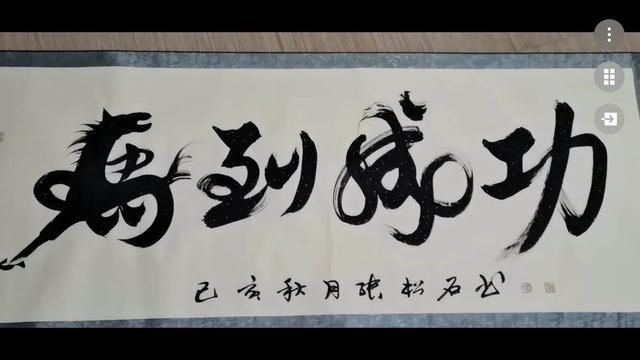 馬到成功
己亥秋月张松石书